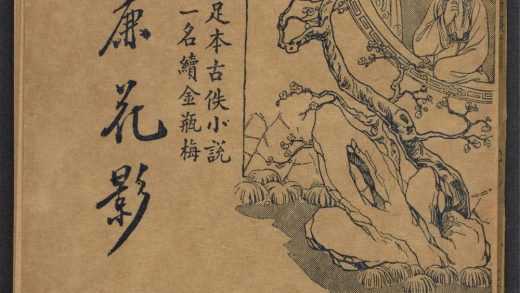 足本古佚小説
一名續金瓶梅
廉花影